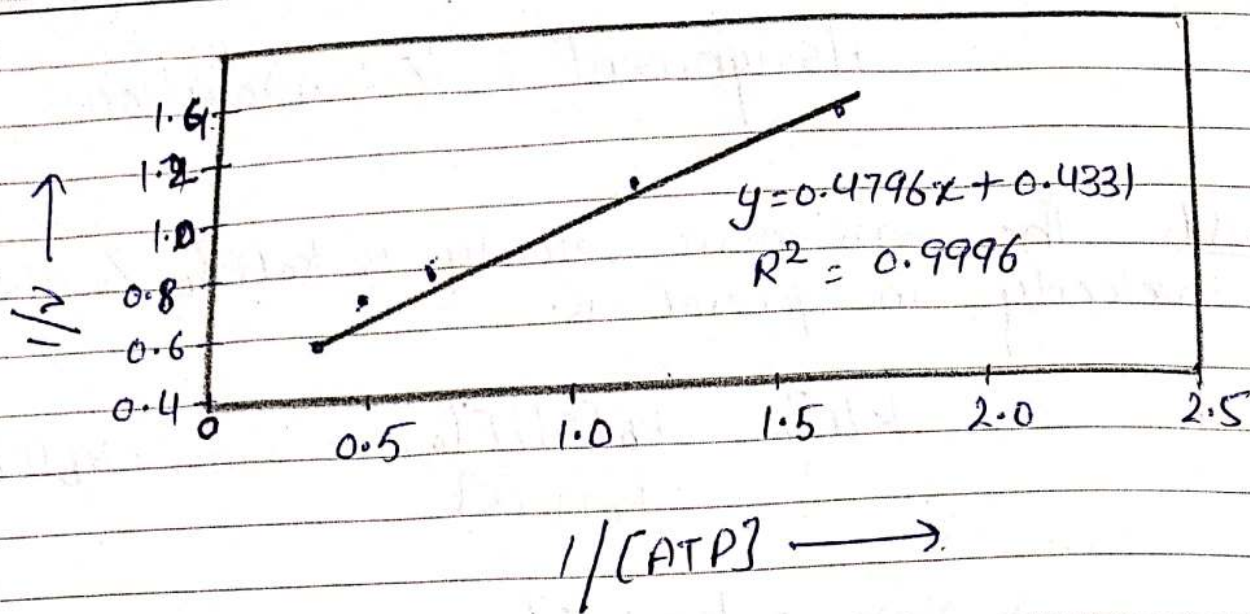 1.6
1.2
1.0
0.8
0.6
0.4
1/V
y=0.4796x+0.4331
R² = 0.9996
0 0.5 1.0 1.5 2.0 2.5
1/[ATP]